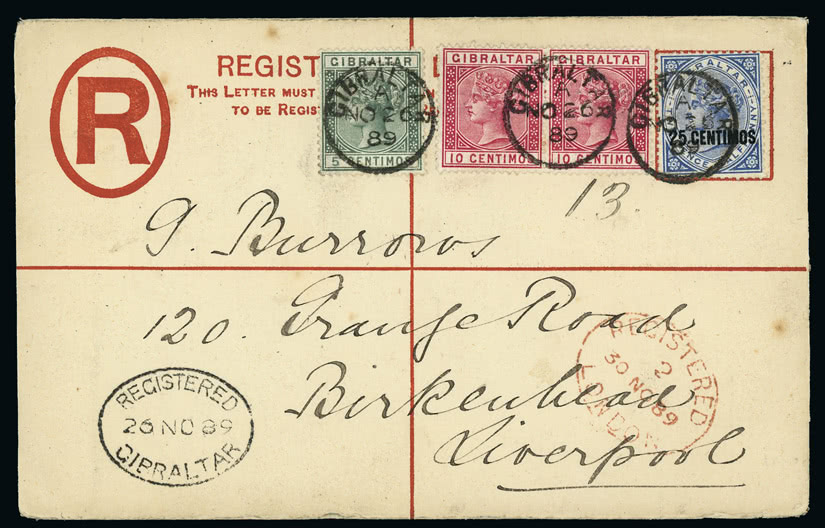 R
REGIST
THIS LETTER MUST
TO BE REGIS
GIBRALTAR
5 CENTIMOS
GIBRALTAR
10 CENTIMOS
GIBRALTAR
10 CENTIMOS
GIBRALTAR
25 CENTIMOS
GIBRALTAR
A
NO 26
89
GIBRALTAR
A
NO 26
89
GIBRALTAR
A
89
13.
G. Burrows
120. Grange Road
Birkenhead
Liverpool
REGISTERED
26 NO 89
GIBRALTAR
REGISTERED
2
30 NO 89
LONDON